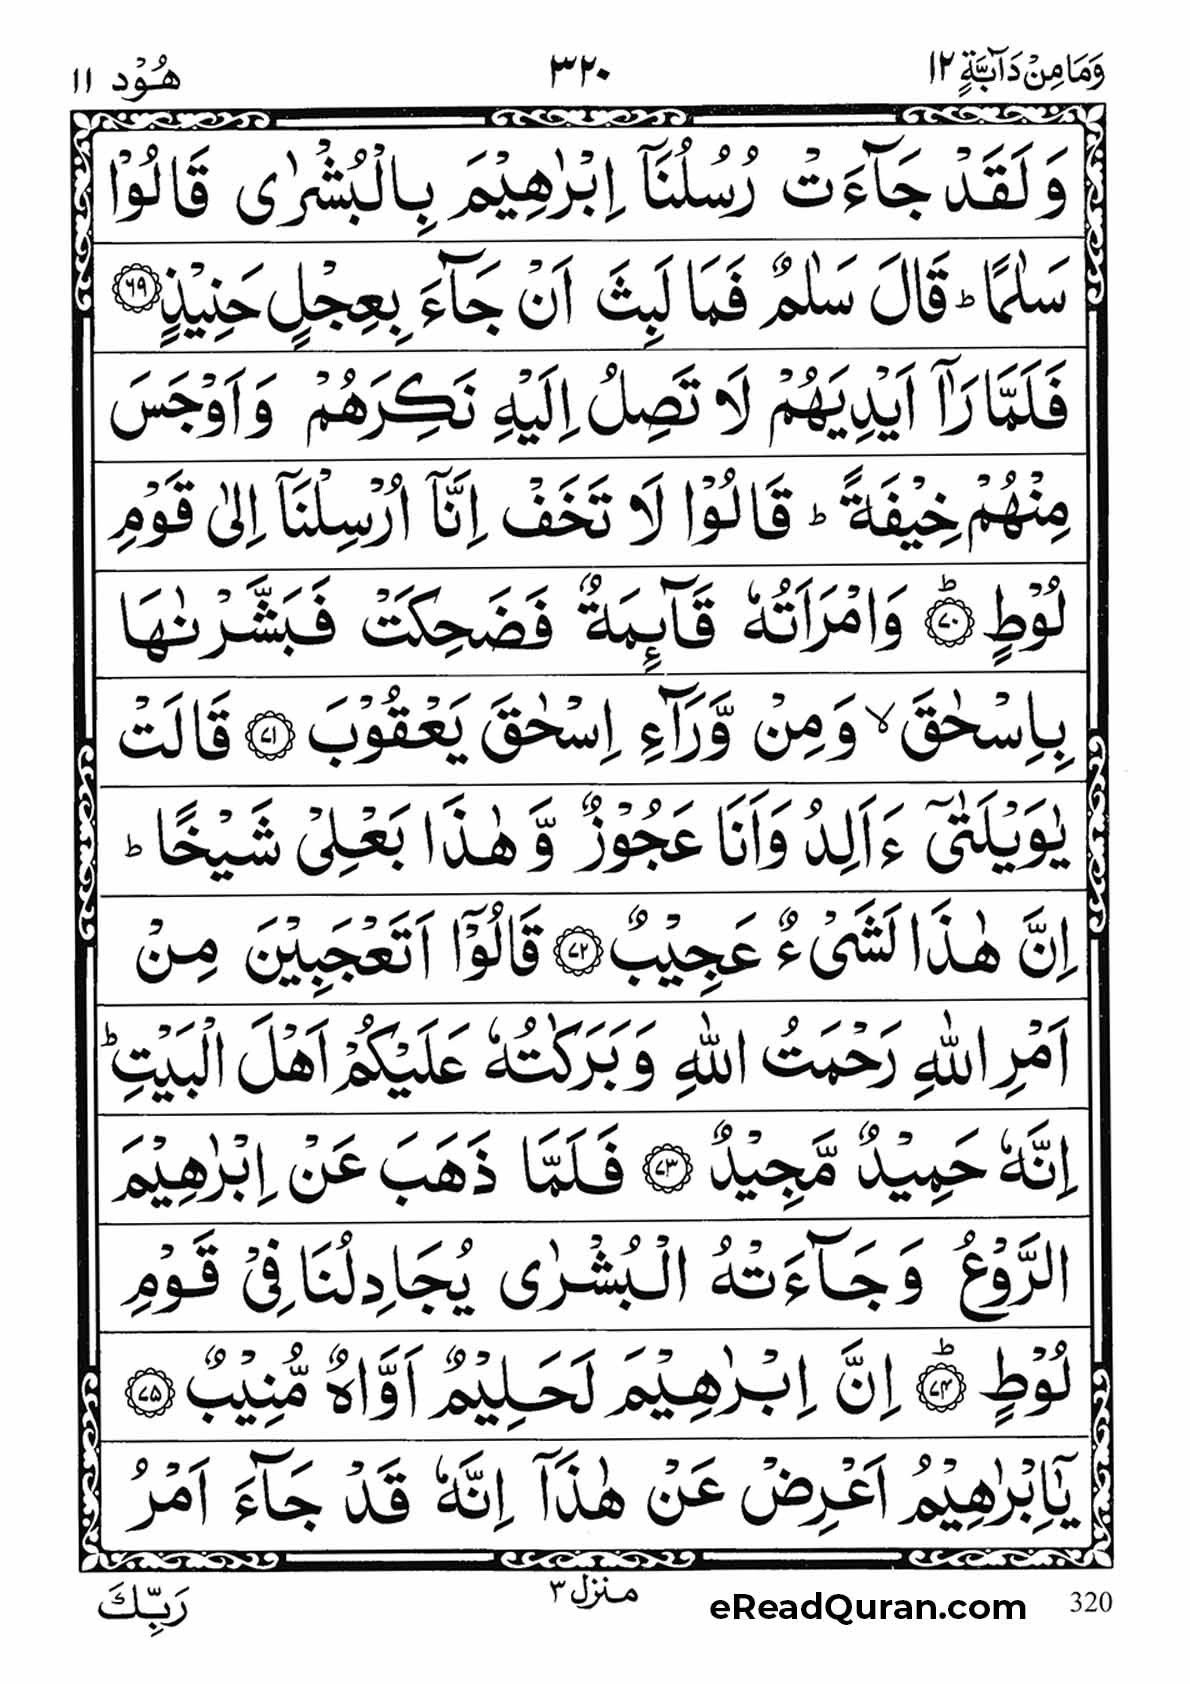 وَمَا مِنْ دَآبَّةٍ ١٢ ٣٢٠ هُوْد ١١
وَلَقَدْ جَآءَتْ رُسُلُنَآ اِبْرٰهِيْمَ بِالْبُشْرٰى قَالُوْا
سَلٰمًا ؕ قَالَ سَلٰمٌ فَمَا لَبِثَ اَنْ جَآءَ بِعِجْلٍ حَنِيْذٍ ﴿٦٩﴾
فَلَمَّا رَاٰۤ اَيْدِيَهُمْ لَا تَصِلُ اِلَيْهِ نَكِرَهُمْ وَاَوْجَسَ
مِنْهُمْ خِيْفَةً ؕ قَالُوْا لَا تَخَفْ اِنَّآ اُرْسِلْنَآ اِلٰى قَوْمِ
لُوْطٍ ؕ ﴿٧٠﴾ وَامْرَاَتُهٗ قَآئِمَةٌ فَضَحِكَتْ فَبَشَّرْنٰهَا
بِاِسْحٰقَ ۙ وَمِنْ وَّرَآءِ اِسْحٰقَ يَعْقُوْبَ ﴿٧١﴾ قَالَتْ
يٰوَيْلَتٰٓى ءَاَلِدُ وَاَنَا عَجُوْزٌ وَّهٰذَا بَعْلِيْ شَيْخًا ؕ
اِنَّ هٰذَا لَشَيْءٌ عَجِيْبٌ ﴿٧٢﴾ قَالُوْٓا اَتَعْجَبِيْنَ مِنْ
اَمْرِ اللّٰهِ رَحْمَتُ اللّٰهِ وَبَرَكٰتُهٗ عَلَيْكُمْ اَهْلَ الْبَيْتِ ؕ
اِنَّهٗ حَمِيْدٌ مَّجِيْدٌ ﴿٧٣﴾ فَلَمَّا ذَهَبَ عَنْ اِبْرٰهِيْمَ
الرَّوْعُ وَجَآءَتْهُ الْبُشْرٰى يُجَادِلُنَا فِيْ قَوْمِ
لُوْطٍ ؕ ﴿٧٤﴾ اِنَّ اِبْرٰهِيْمَ لَحَلِيْمٌ اَوَّاهٌ مُّنِيْبٌ ﴿٧٥﴾
يٰٓاِبْرٰهِيْمُ اَعْرِضْ عَنْ هٰذَآ اِنَّهٗ قَدْ جَآءَ اَمْرُ
رَبِّكَ
منزل ٣
eReadQuran.com
320